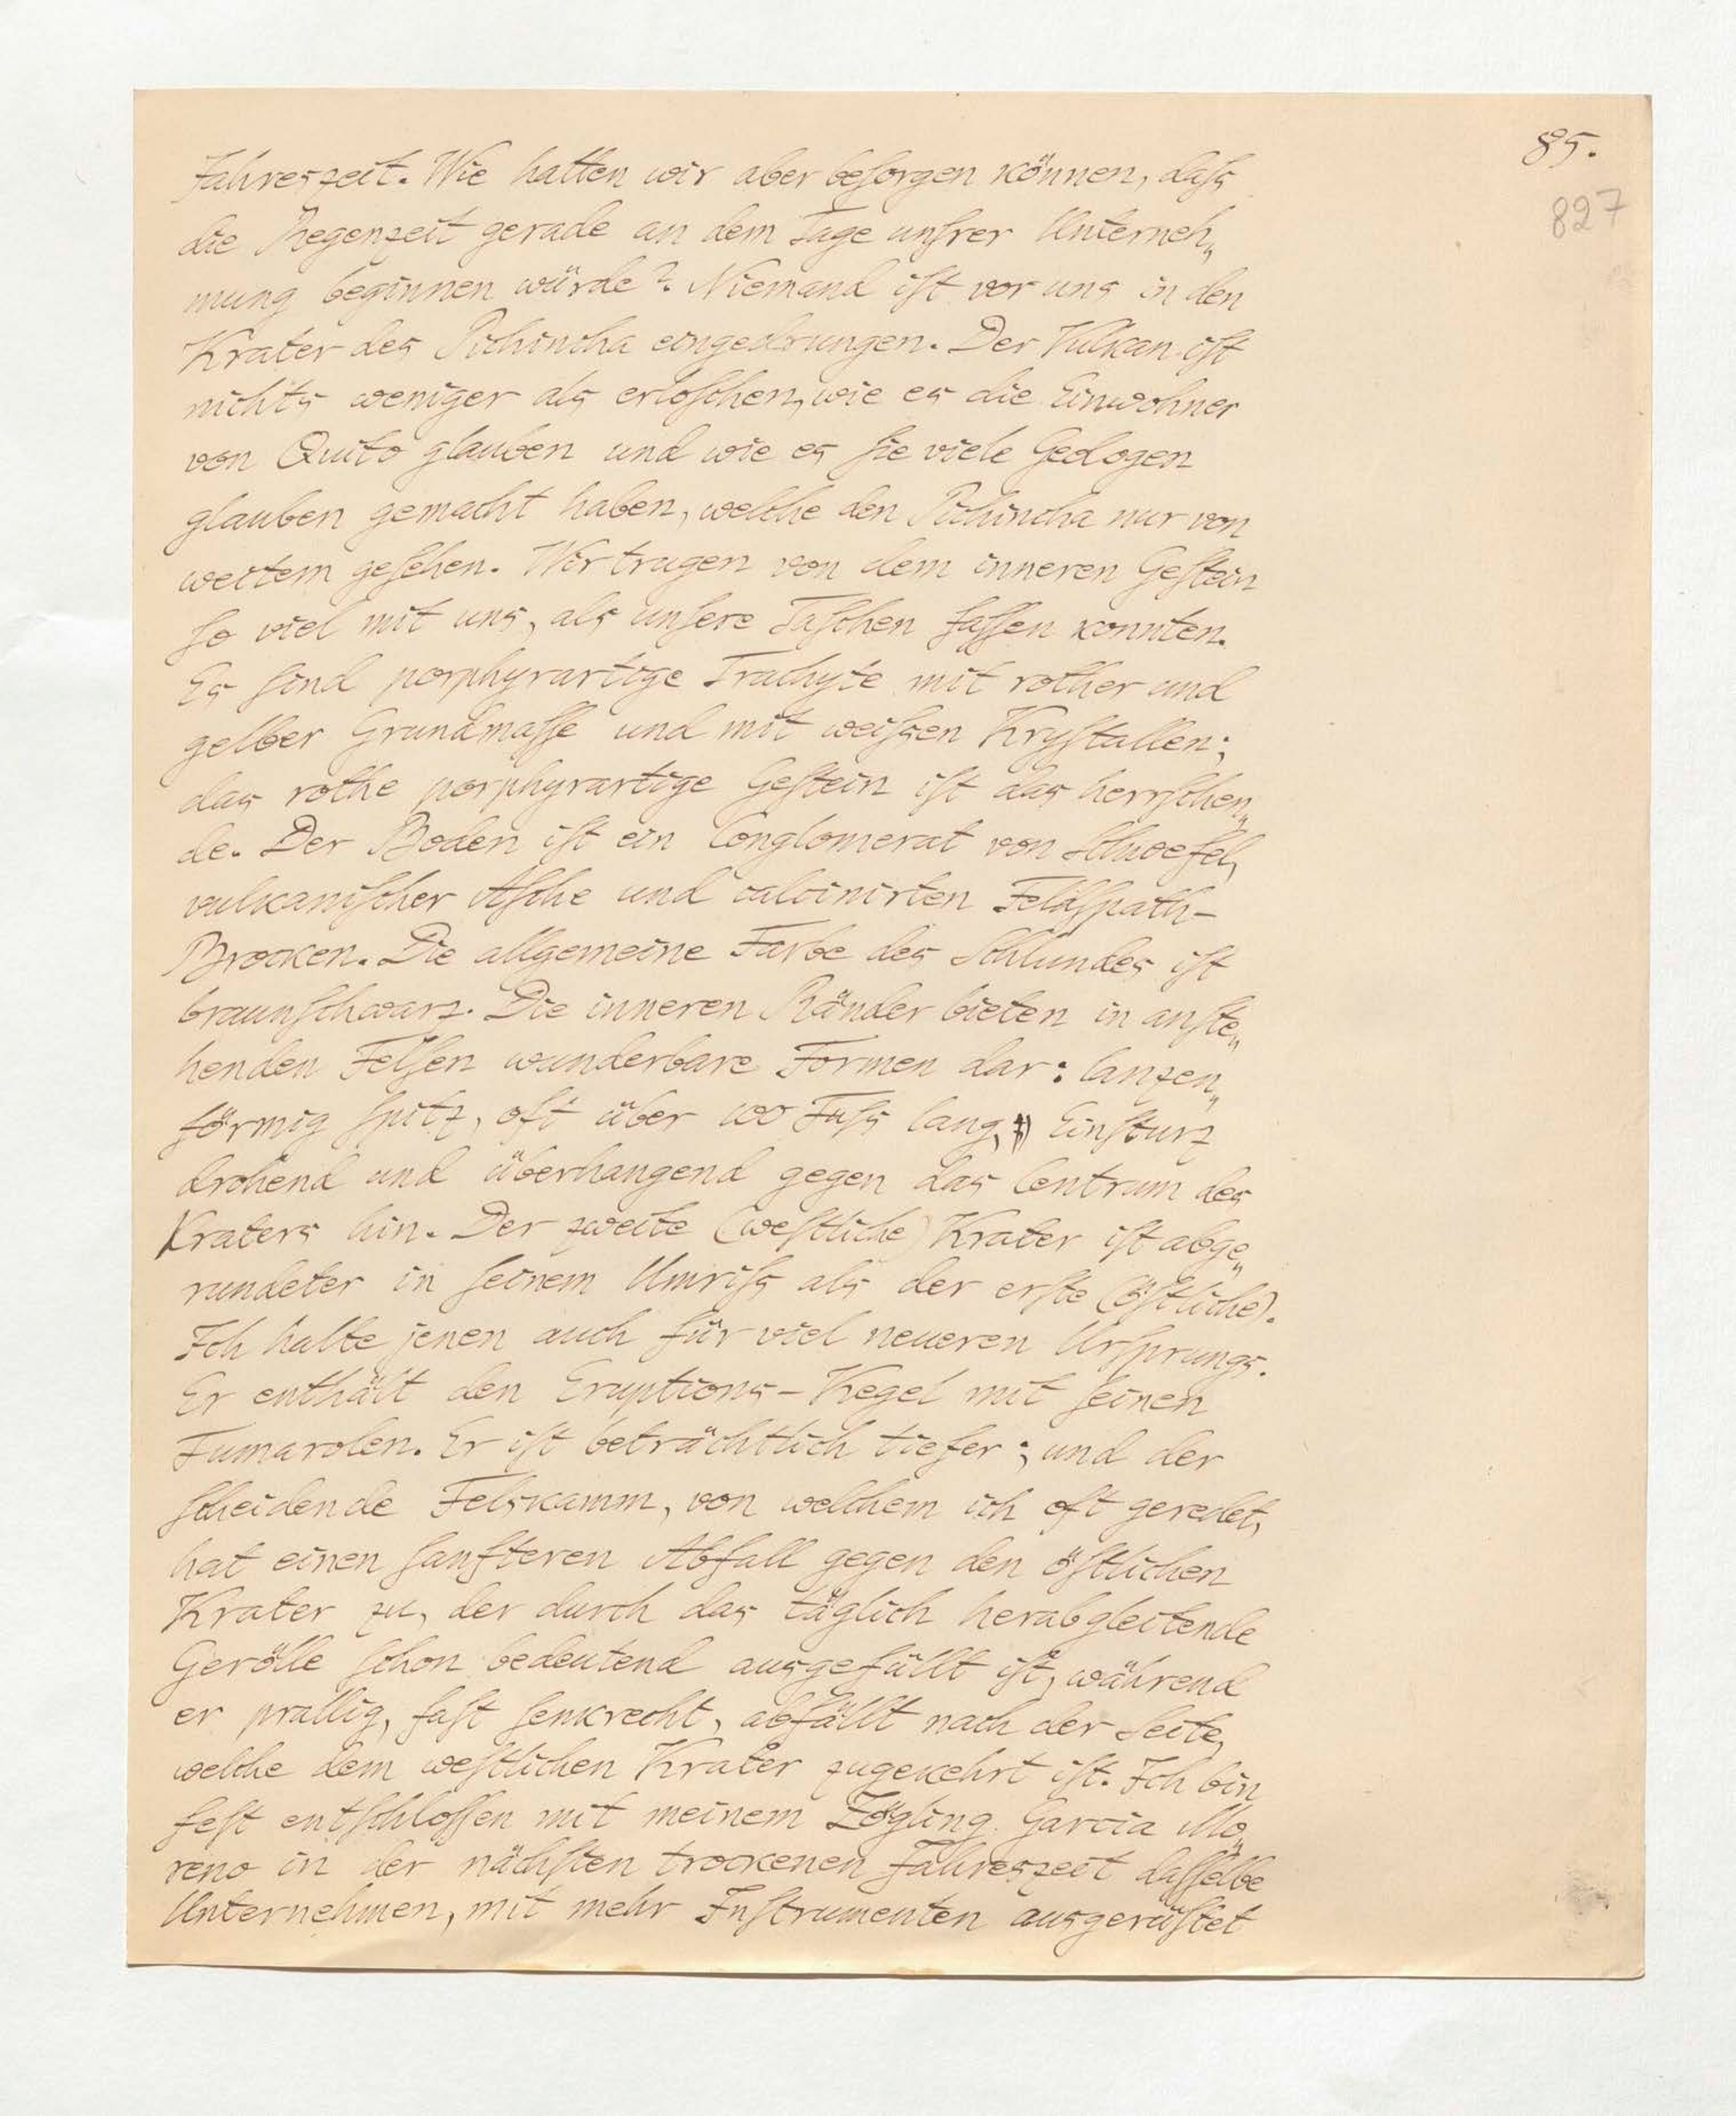 85.
827
Jahreszeit. Wie hatten wir aber beſorgen können, daſs
die Regenzeit gerade an dem Tage unſrer Unterneh„
mung beginnen würde? Niemand iſt vor uns in den
Krater des Pichincha eingedrungen. Der Vulkan iſt
nichts weniger als erloſchen, wie es die Einwohner
von Quito glauben und wie es ſie viele Geologen
glauben gemacht haben, welche den Pichincha nur von
weitem geſehen. Wir trugen von dem inneren Geſtein
ſo viel mit uns, als unſere Taſchen faſſen konnten.
Es ſind porphyrartige Trachyte mit rother und
gelber Grundmaſſe und mit weiſsen Kryſtallen;
das rothe porphyrartige Geſtein iſt das herrſchen„
de. Der Boden iſt ein Conglomerat von Schwefel,
vulkaniſcher Aſche und calcinirten Feldſpath-
Brocken. Die allgemeine Farbe des Schlundes iſt
braunſchwarz. Die inneren Ränder bieten in anſte„
henden Felſen wunderbare Formen dar: lanzen„
förmig ſpitz, oft über 100 Fuſs lang, Einſturz
drohend und überhangend gegen das Centrum des
Kraters hin. Der zweite (weſtliche) Krater iſt abge„
rundeter in ſeinem Umriſs als der erſte (öſtliche).
Ich halte jenen auch für viel neueren Urſprungs.
Er enthält den Eruptions-Kegel mit ſeinen
Fumarolen. Er iſt beträchtlich tiefer; und der
ſcheidende Felskamm, von welchem ich oft geredet,
hat einen ſanfteren Abfall gegen den öſtlichen
Krater zu, der durch das täglich herabgleitende
Gerölle ſchon bedeutend ausgefüllt iſt, während
er prallig, faſt ſenkrecht, abfällt nach der Seite,
welche dem weſtlichen Krater zugekehrt iſt. Ich bin
feſt entſchloſſen mit meinem Zögling Garcia Mo„
reno in der nächſten trockenen Jahreszeit daſſelbe
Unternehmen, mit mehr Inſtrumenten ausgerüſtet